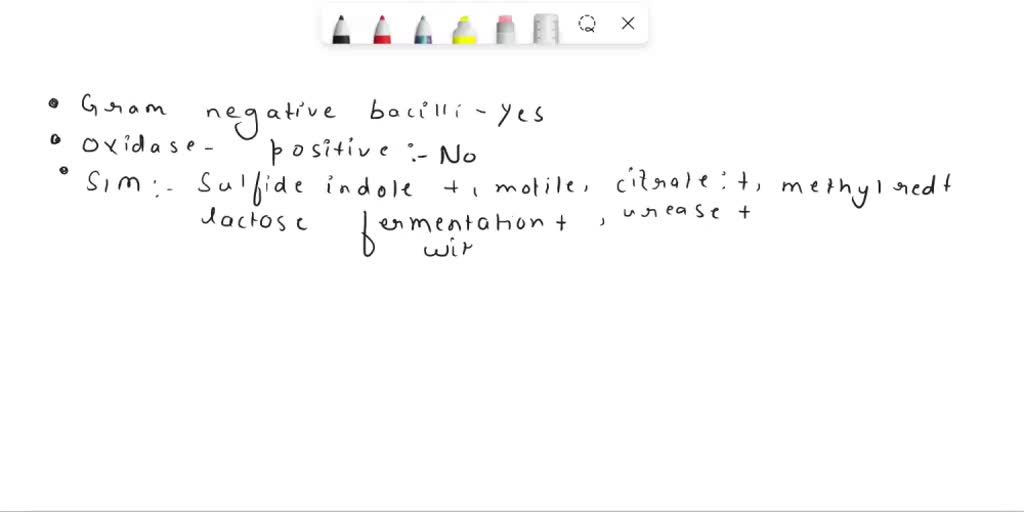 • Gram negative bacilli - yes
• Oxidase - positive :- No
• SIM :- Sulfide indole +, motile, citrate : +, methyl red +
lactose fermentation +, urease +
wit